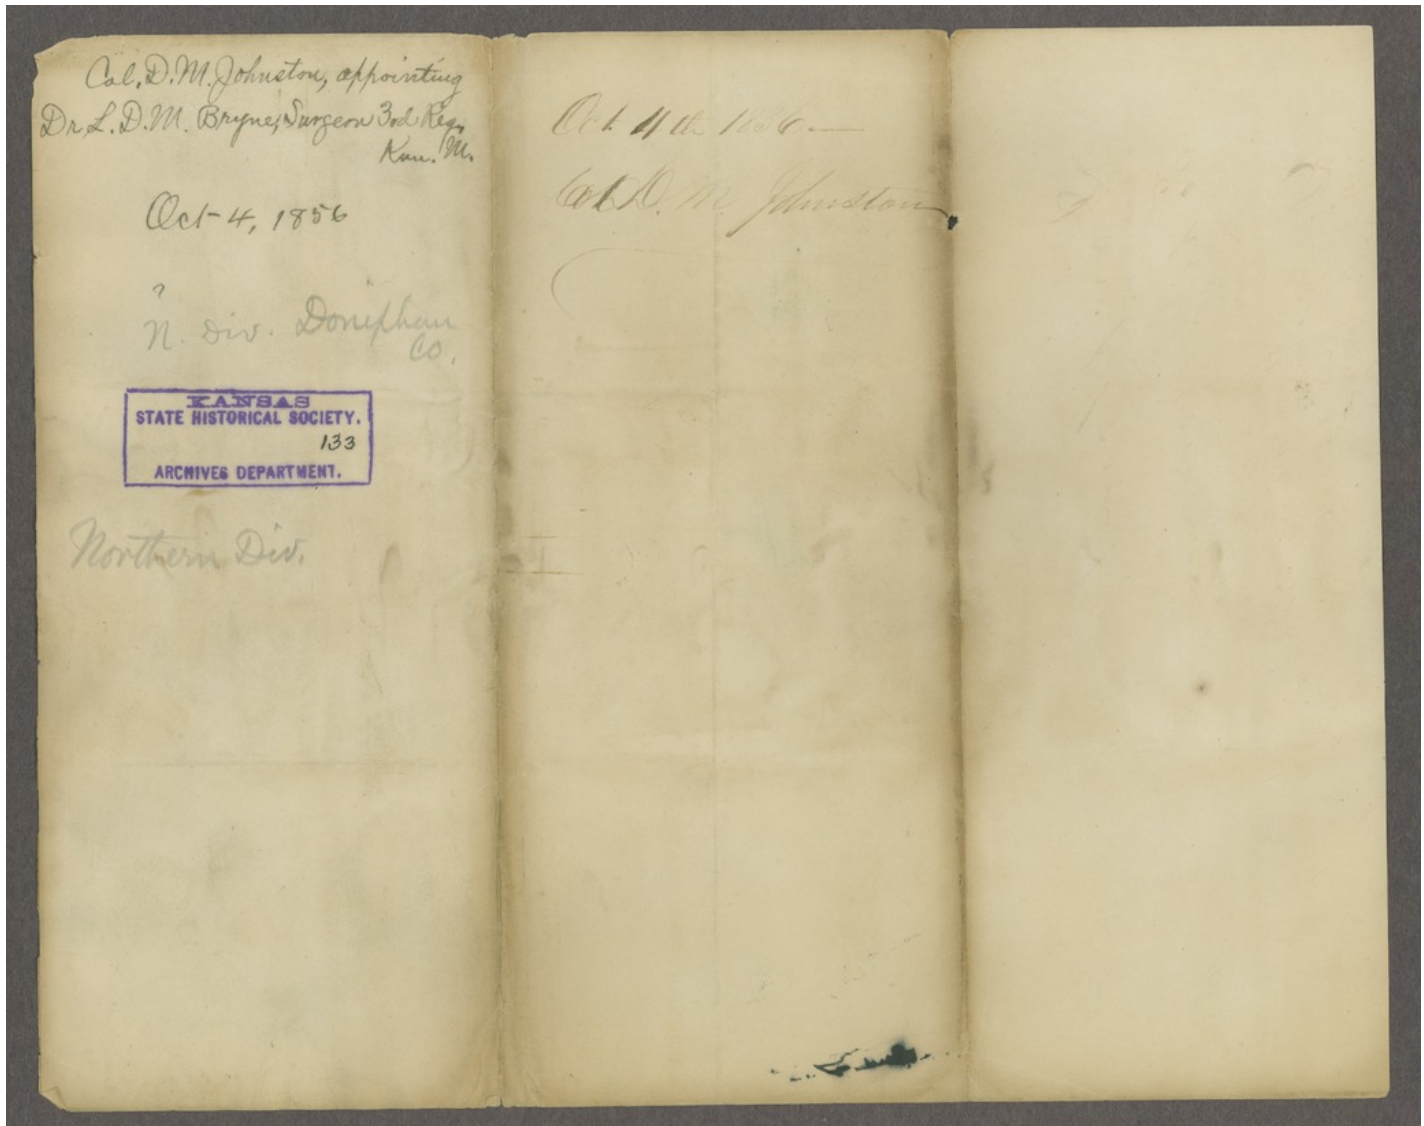 Col. D. M. Johnston, appointing
Dr. L. D. M. Bryne, Surgeon 3rd Reg.
Kan. M.
Oct 4, 1856
?
N. Div. Doniphan
Co.
KANSAS
STATE HISTORICAL SOCIETY.
133
ARCHIVES DEPARTMENT.
Northern Div.
Oct 4th 1856
Col D. M. Johnston